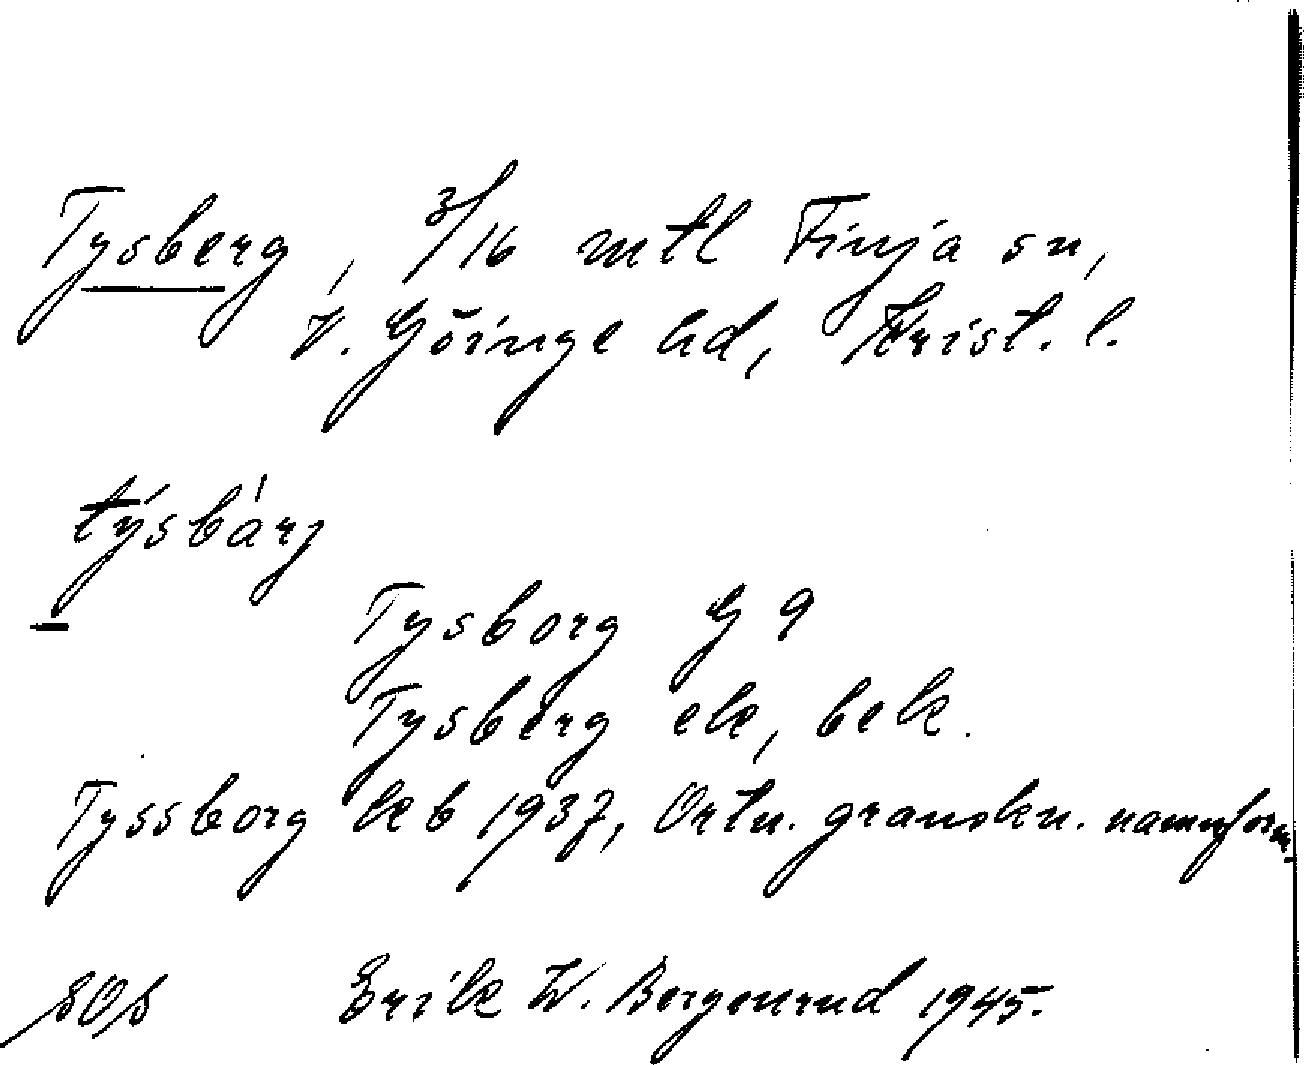 Tysberg, 3/16 mtl Finja sn,
V. Göinge hd, Krist. l.
týsbàrj
Tysborg G 9
Tysberg ek, bek.
Tyssborg kb 1937, Ortn. granskn. namnform.
SOS Erik W. Bergenrud 1945.